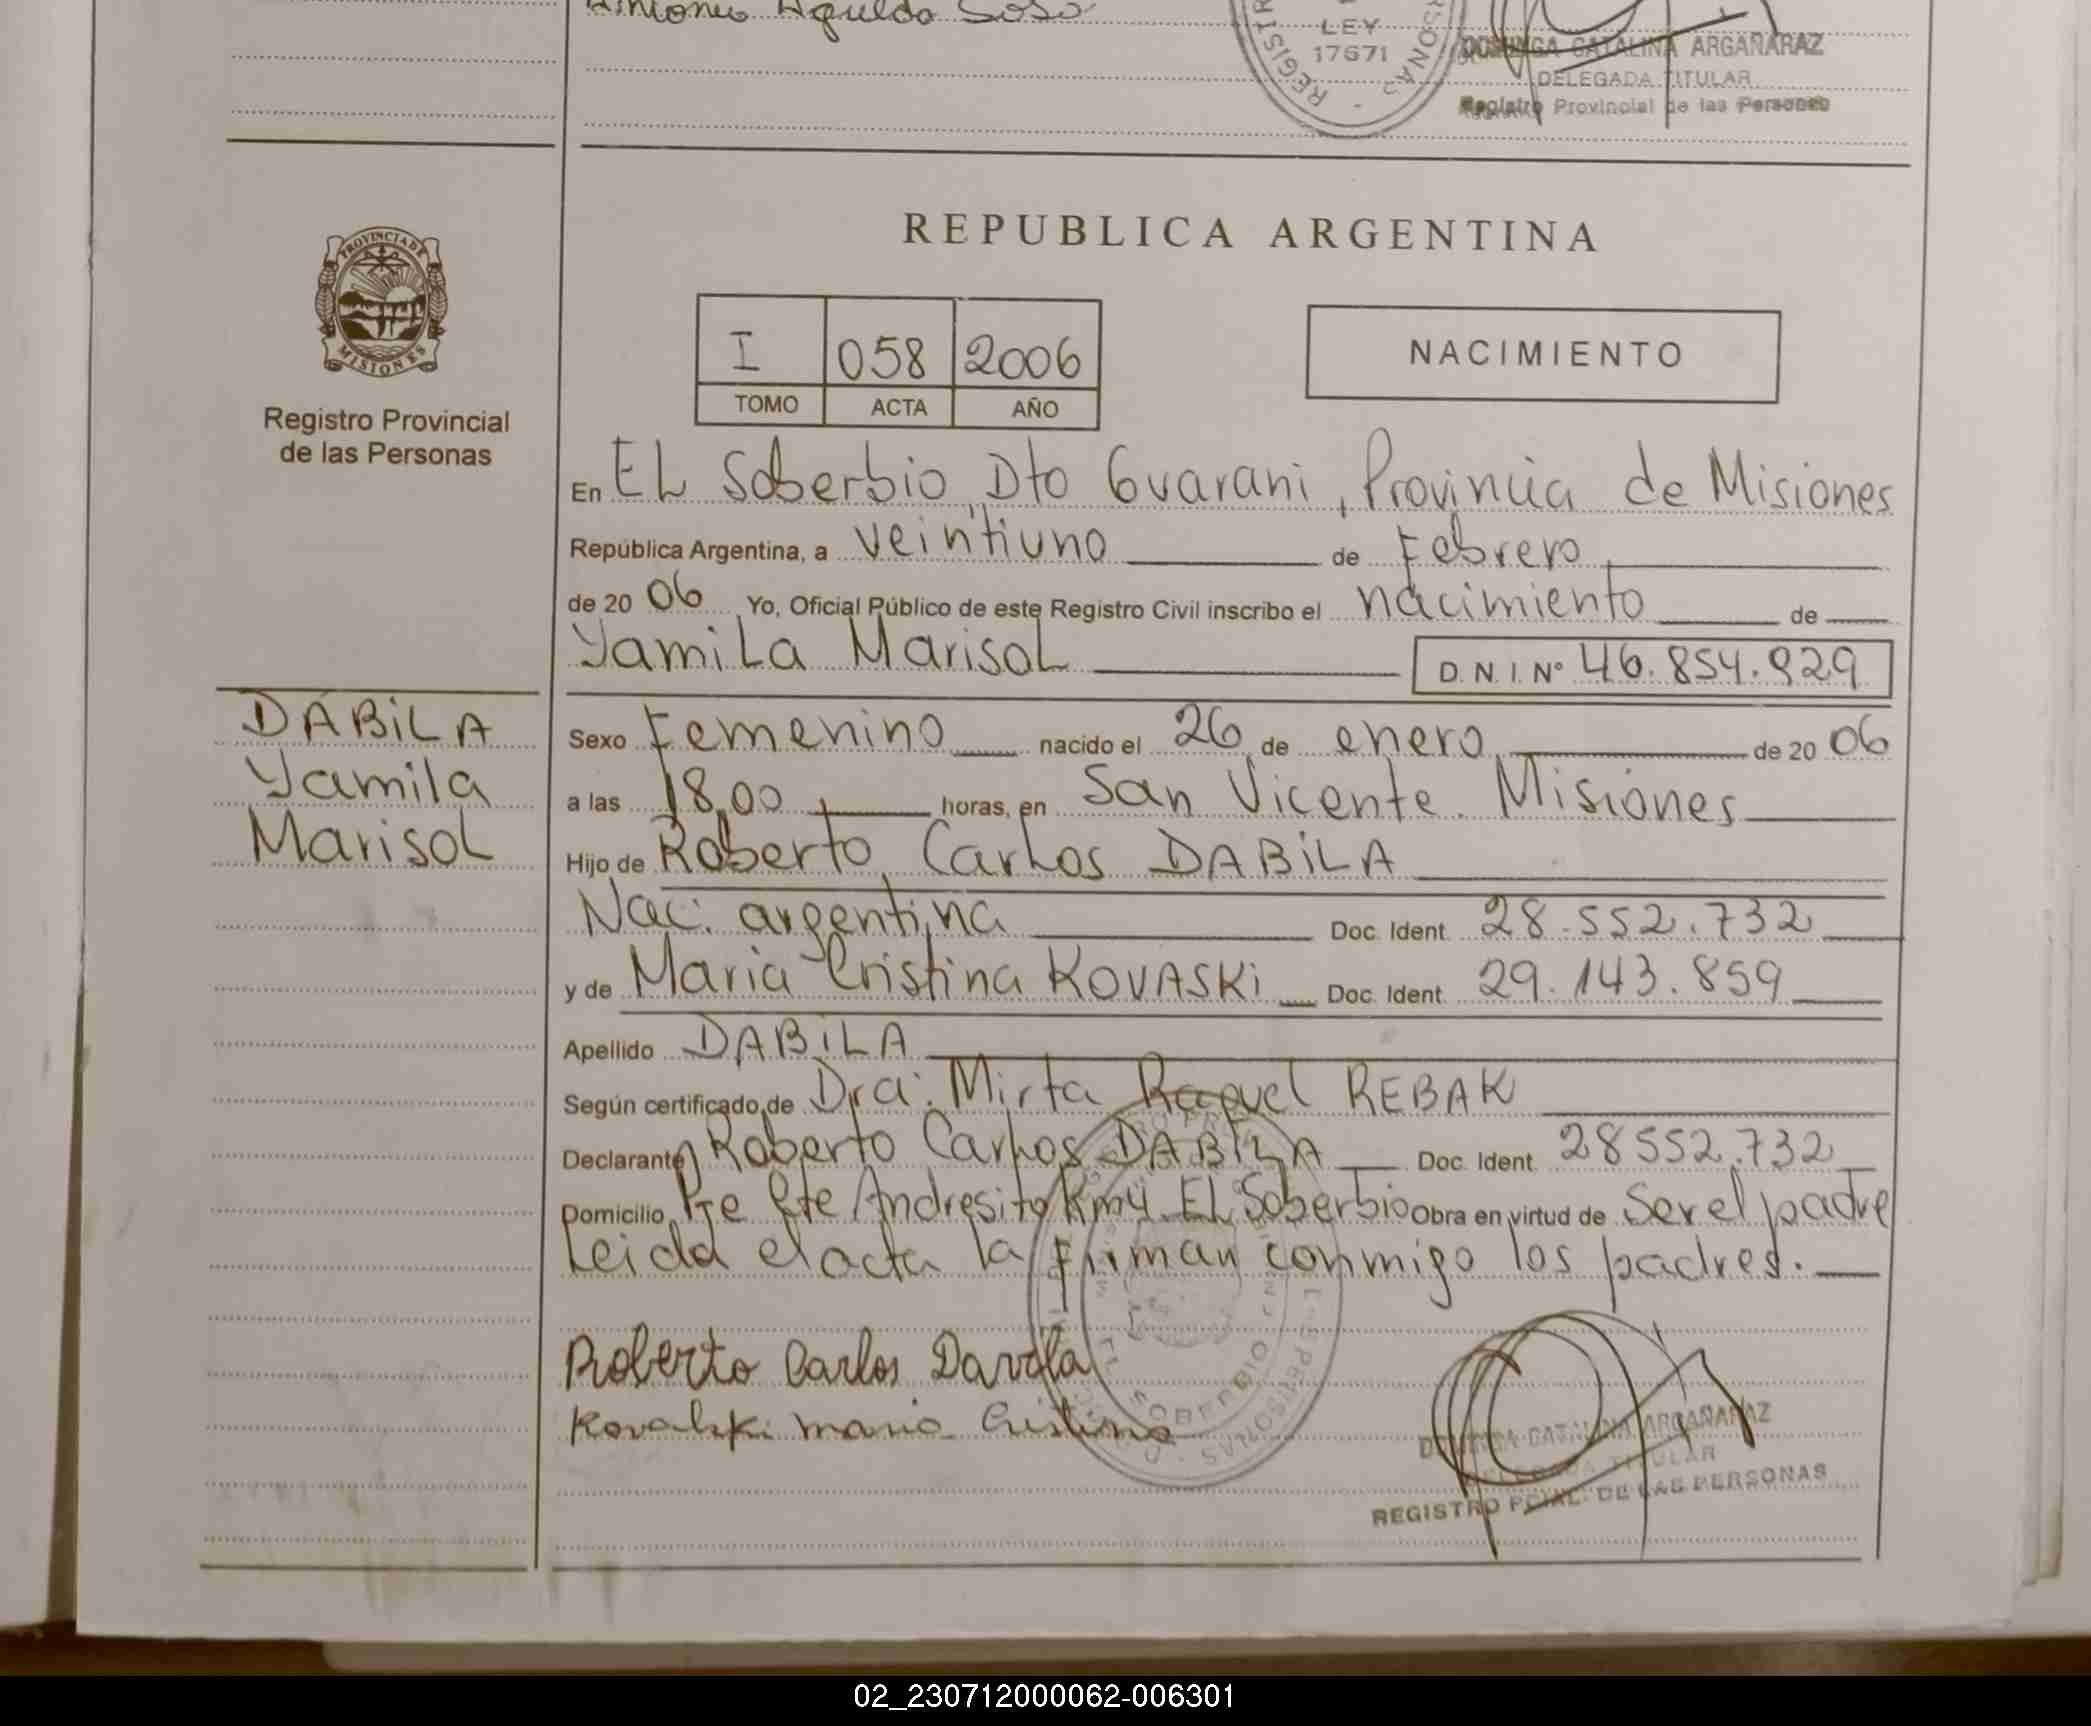 Antonio Agueldo Soso
REGISTR
LEY
17671
RSONAS
DOMINGA CATALINA ARGAÑARAZ
DELEGADA TITULAR
Registro Provincial de las Personas
PROVINCIA DE
MISIONES
Registro Provincial
de las Personas
REPUBLICA ARGENTINA
I 058 2006
TOMO ACTA AÑO
NACIMIENTO
En EL Soberbio Dto Guarani, Provincia de Misiones
República Argentina, a veintiuno de Febrero
de 2006 Yo, Oficial Público de este Registro Civil inscribo el nacimiento de
Yamila Marisol D.N.I. Nº 46.854.929
DABiLA
Yamila
Marisol
Sexo Femenino nacido el 26 de enero de 2006
a las 18,00 horas, en San Vicente. Misiones
Hijo de Roberto Carlos DABiLA
Nac: argentina Doc. Ident. 28.552.732
y de Maria Cristina KOVASKi Doc. Ident. 29.143.859
Apellido DABiLA
Según certificado de Dra: Mirta Raquel REBAK
Declarante Roberto Carlos DABiLA Doc. Ident. 28552.732
Domicilio Pje Cte Andresito Km4 EL Soberbio Obra en virtud de Ser el padre
Leida el acta la firman conmigo los padres.
Roberto Carlos Davila
Kovalski maria Cristina
EL SOBERBIO
DOMINGA CATALINA ARGAÑARAZ
DELEGADA TITULAR
REGISTRO PCIAL. DE LAS PERSONAS
02_230712000062-006301